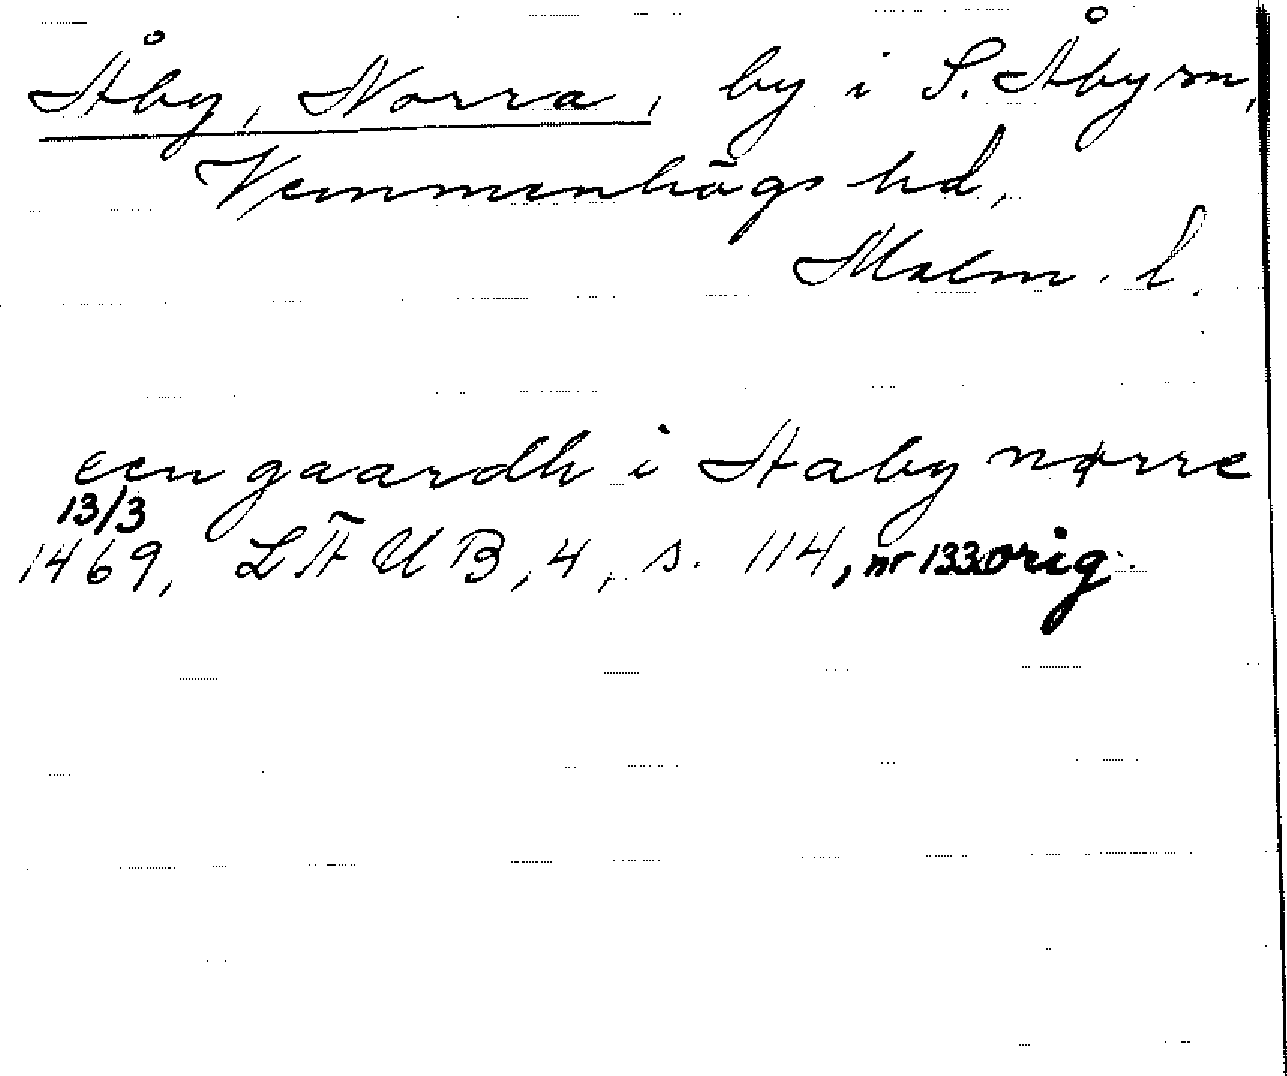 Åby, Norra, by i S. Åby sn,
Vemmenhögs hd,
Malm. l.
een gaardh i Aaby nørre
13/3
1469, LÄUB, 4, s. 114, nr 133 orig.